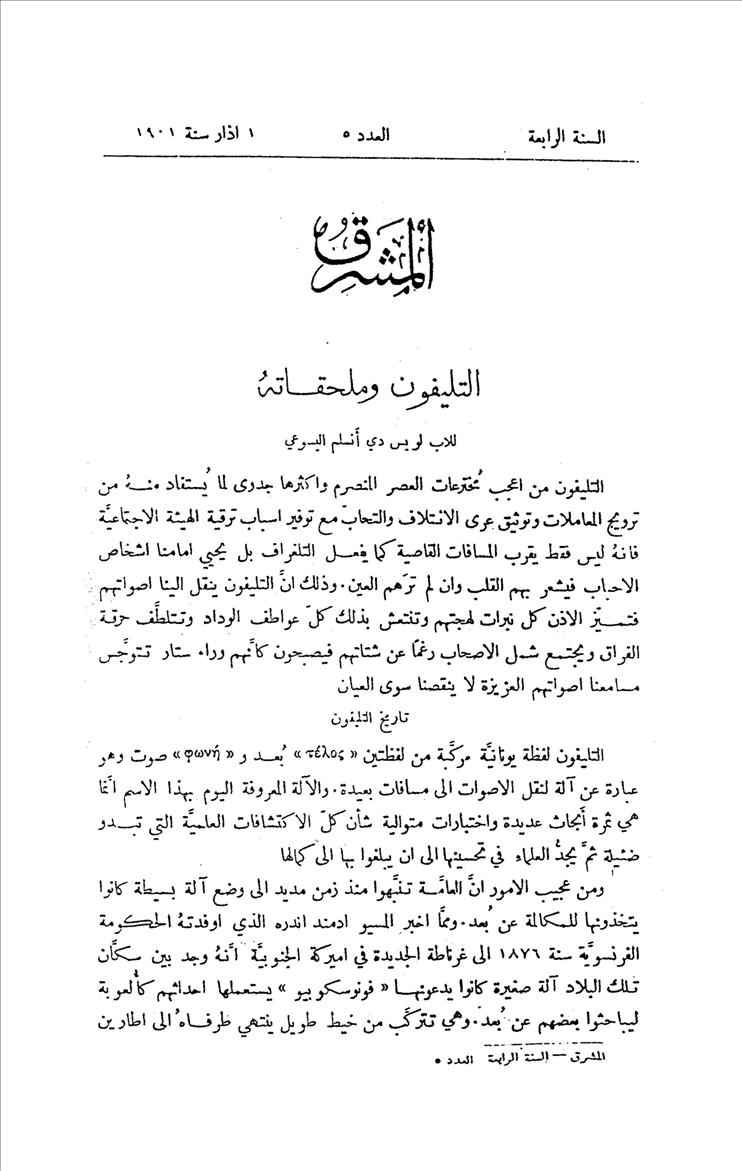 السنة الرابعة العدد ٥ ١ اذار سنة ١٩٠١
المشرق
التليفون وملحقاتهُ
للاب لويس دي أَنسلم اليسوعي
التليفون من اعجب مُخترعات العصر المنصرم واكثرها جدوى لما يُستفاد منهُ من
ترويج المعاملات وتوثيق عرى الائتلاف والتحابّ مع توفير اسباب ترقية الهيئة الاجتماعيَّة
فانهُ ليس فقط يقرب المسافات القاصية كما يفعل التلغراف بل يحيي امامنا اشخاص
الاحباب فيشعر بهم القلب وان لم ترَهم العين. وذلك انَّ التليفون ينقل الينا اصواتهم
فتميّز الاذن كل نبرات لهجتهم وتنتعش بذلك كلّ عواطف الوداد وتتلطَّف حرقة
الفراق ويجتمع شمل الاصحاب رغمًا عن شتاتهم فيصبحون كأنَّهم وراء ستار تتوجَّس
مسامعنا اصواتهم العزيزة لا ينقصنا سوى العيان
تاريخ التليفون
التليفون لفظة يونانيَّة مركَّبة من لفظتين «τέλος» بُعد و «φωνή» صوت وهو
عبارة عن آلة لنقل الاصوات الى مسافات بعيدة. والآلة المعروفة اليوم بهذا الاسم انَّما
هي ثمرة أبحاث عديدة واختبارات متوالية شأن كلّ الاكتشافات العلميَّة التي تبدو
ضئيلة ثمَّ يجدُّ العلماء في تحسينها الى ان يبلغوا بها الى كمالها
ومن عجيب الامور انَّ العامَّة تنبَّهوا منذ زمن مديد الى وضع آلة بسيطة كانوا
يتخذونها للمكالمة عن بُعد. وممَّا اخبر المسيو ادمند اندره الذي اوفدتهُ الحكومة
الفرنسويَّة سنة ١٨٧٦ الى غرناطة الجديدة في اميركة الجنوبيَّة انَّهُ وجد بين سكَّان
تلك البلاد آلة صغيرة كانوا يدعونها «فونوسكوبيو» يستعملها احداثهم كألعوبة
ليباحثوا بعضهم عن بُعد. وهي تتركَّب من خيط طويل ينتهي طرفاهُ الى اطارين
المشرق — السنة الرابعة العدد ٥